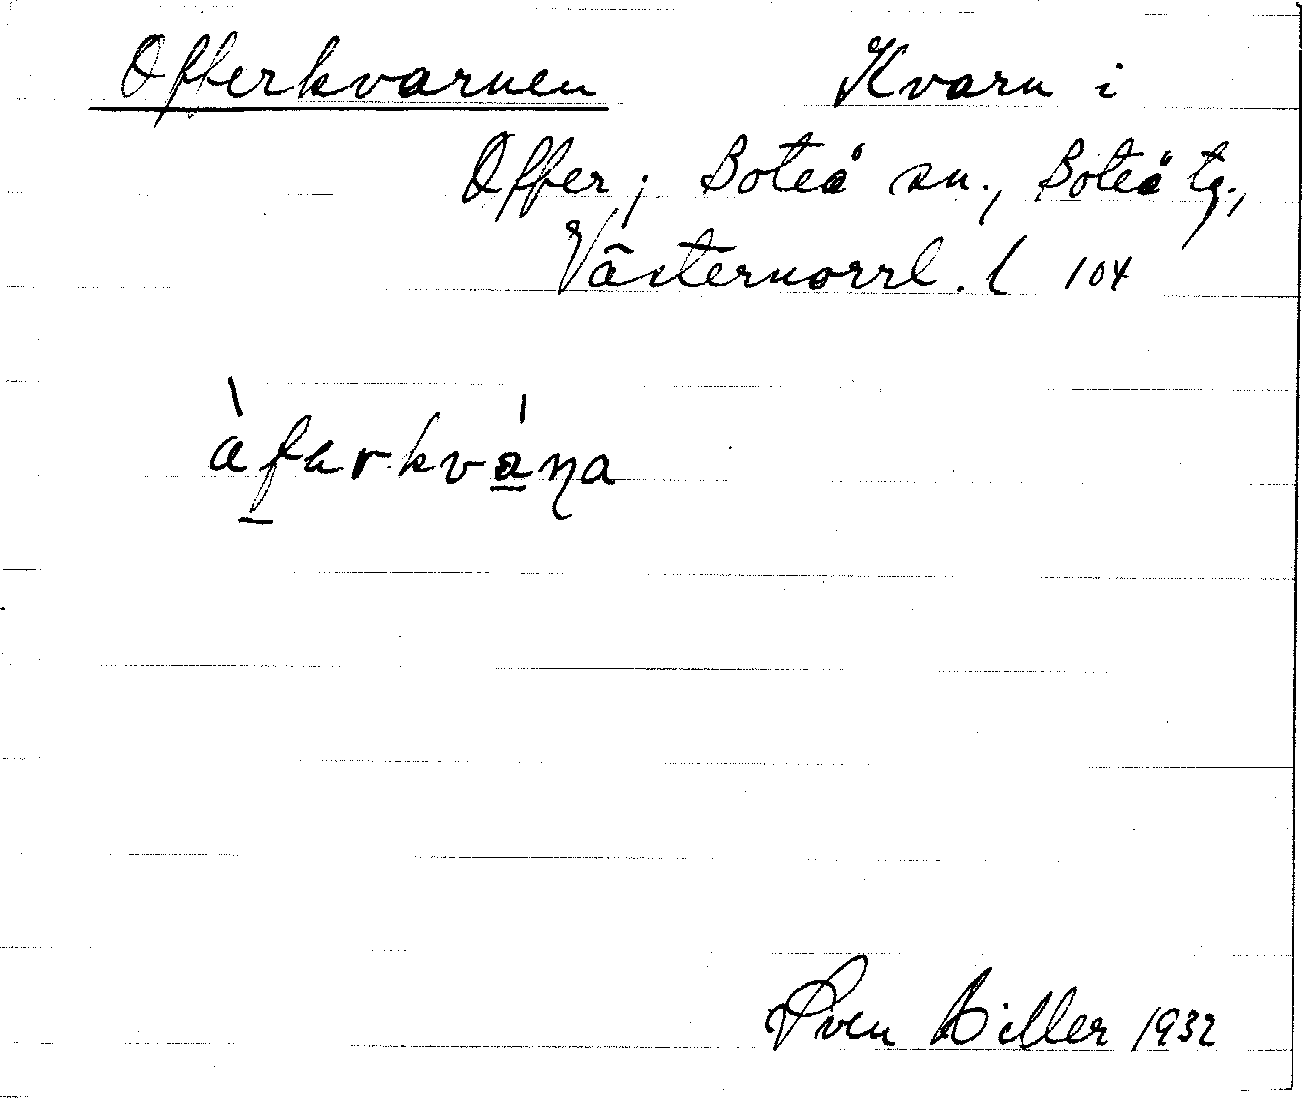 Offerkvarnen Kvarn i
Offer; Boteå sn., Boteå tg.,
Västernorrl. l 104
àfarkváṇa
Sven Hiller 1932